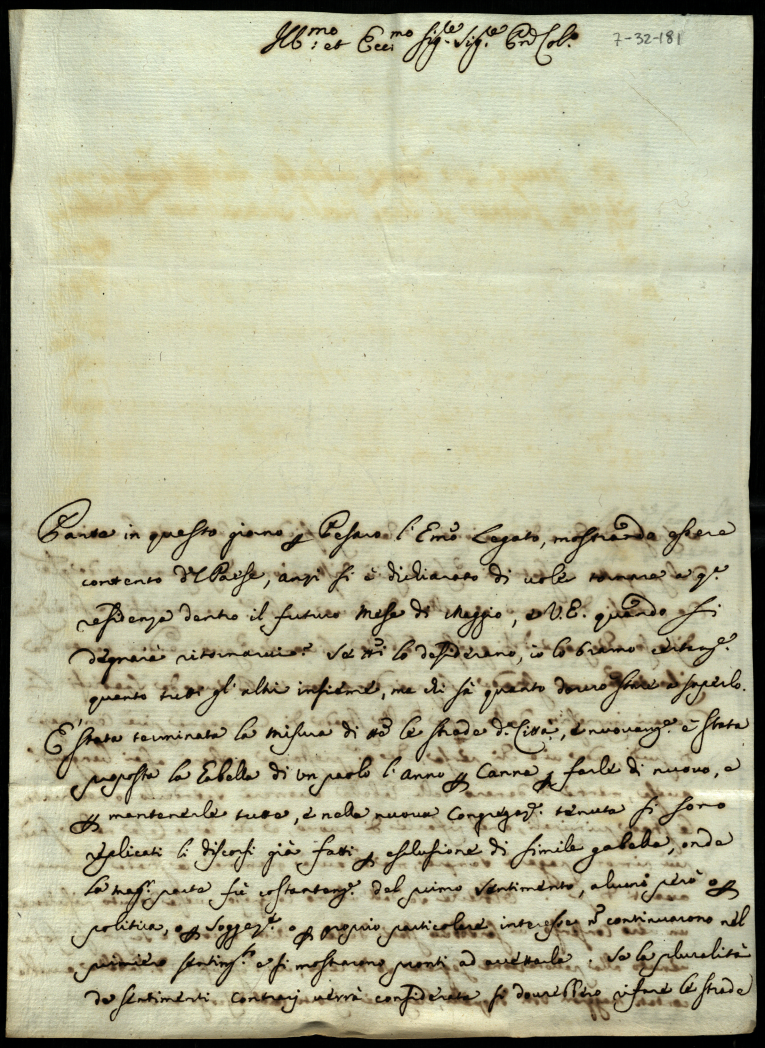 Ill.mo et Ecc.mo Sig.re Sig.re Prôn Col.mo
7-32-181
Parte in questo giorno p Pesaro l'Emo Legato, mostrando essere
contento del Paese, anzi si è dichiarato di voler tornare a q.a
residenza dentro il futuro Mese di Maggio, e V.E. quando si
degnerà ritornarci? Se tti lo desiderano, io lo bramo certam.e
quanto tutti gl'altri insieme, ma chi sà quanto dovrò stare a saperlo.
E' stata terminata la misura di tte le strade d.a Città, e nuovam.e è stata
proposta la Gabella di un paolo l'anno p Canna p farle di nuovo, e
p mantenerle tutte, e nella nuova Congregaz.e tenuta si sono
replicati li discorsi già fatti p esclusione di simile gabella, onde
la mag.r parte fù costantem.e del primo sentimento, alcuni però o p
politica, o p soggez.e o p proprio particolare interesse nō continuarono nel
primiero sentim.to e si mostrarono pronti ad accettarla. Se la pluralità
de sentimenti contrarj verrà considerata si dovrebbero rifare le strade